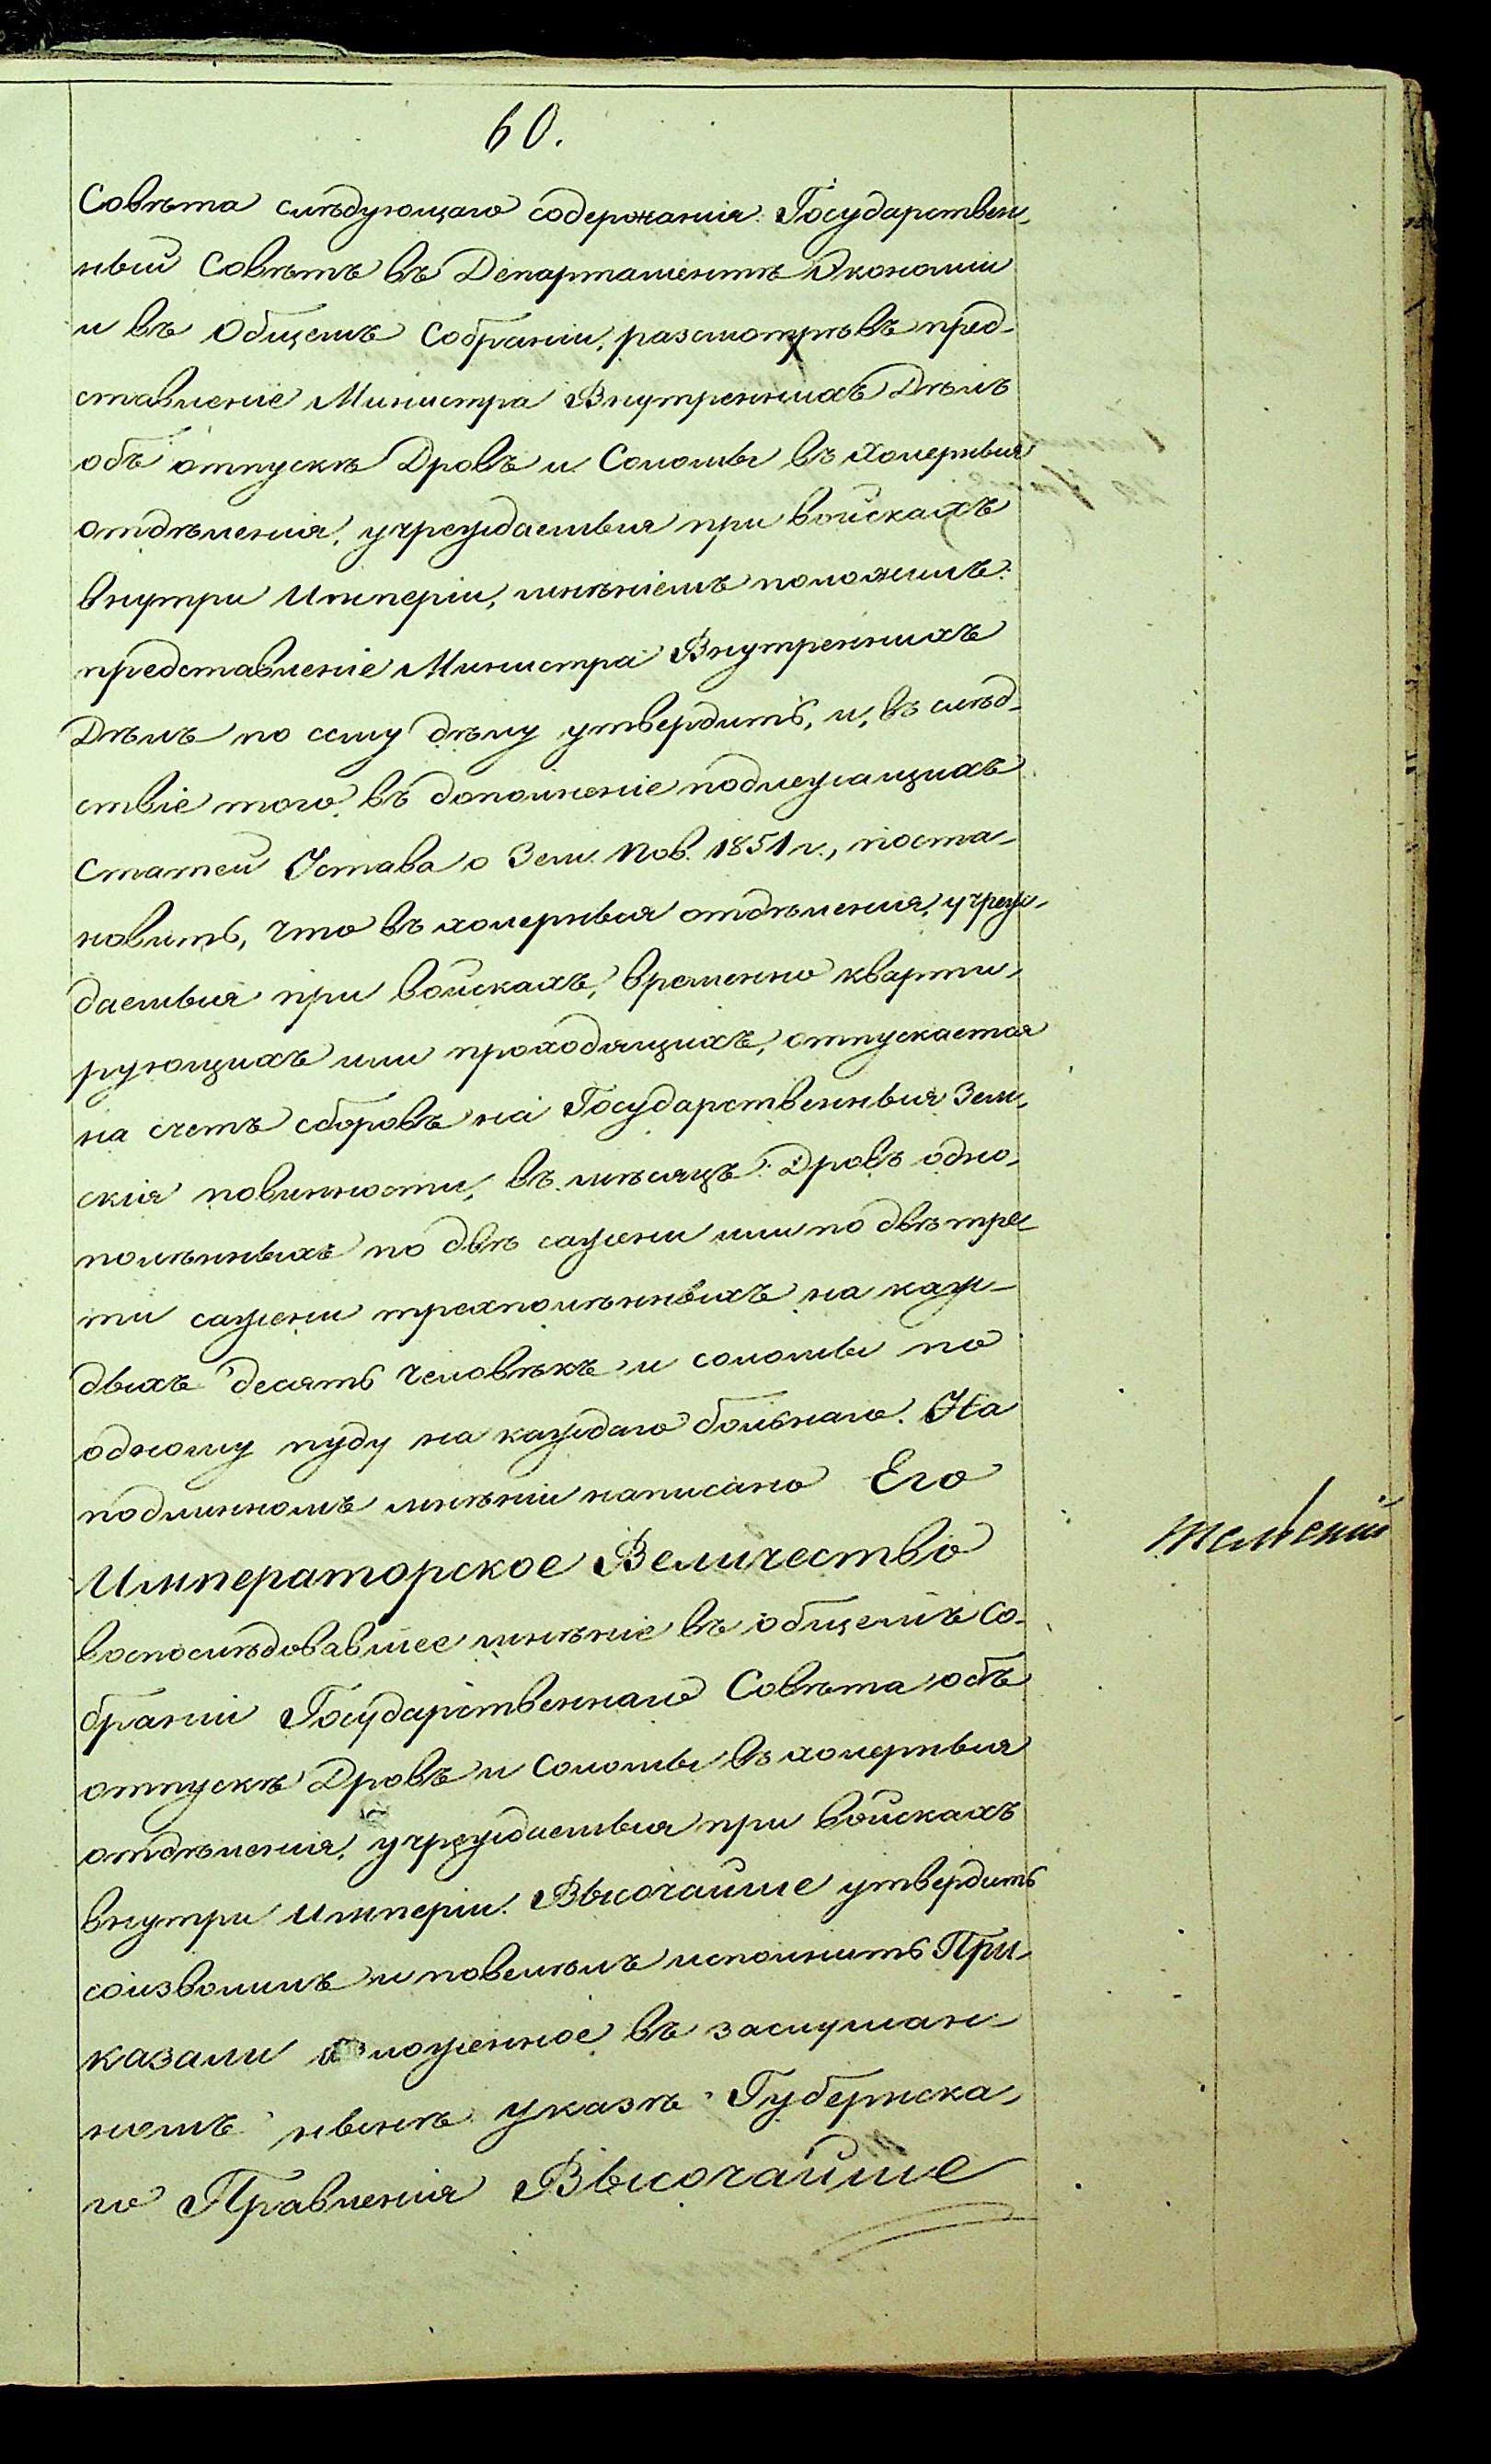 60.
Совѣта слѣдующаго содержанія: Государствен-
ный Совѣтъ въ Департаментѣ Экономіи
и въ Общемъ Собраніи, разсмотрѣвъ пред-
ставленіе Министра Внутреннихъ Дѣлъ
объ отпускѣ Дровъ и Соломы въ холерныя
отдѣленія, учреждаемыя при войскахъ
внутри Имперіи, мнѣніемъ положилъ:
представленіе Министра Внутреннихъ
Дѣлъ по сему дѣлу утвердить, и, въ слѣд-
ствіе того, въ дополненіе подлежащихъ
Статей Устава о Зем. Пов. 1851 г., поста-
новить, что въ холерныя отдѣленія, учреж-
даемыя при войскахъ, временно кварти-
рующихъ или проходящихъ, отпускается
на счетъ сборовъ на Государственныя Зем-
скія повинности, въ мѣсяцъ: Дровъ одно-
полѣнныхъ по двѣ сажени или по двѣ тре-
ти сажени трехполѣнныхъ на каж-
дыхъ десять человѣкъ и соломы по
одному пуду на каждаго больнаго. На
подлинномъ мнѣніи написано Его
Императорское Величество
воспослѣдовавшее мнѣніе въ общемъ Со-
браніи Государственнаго Совѣта объ
отпускѣ Дровъ и Соломы въ холерныя
отдѣленія, учреждаемыя при войскахъ
внутри Имперіи. Высочайше утвердить
соизволилъ и повелѣлъ исполнить При-
казали изложенное въ заслушан-
номъ нынѣ указѣ Губернска-
го Правленія Высочайше